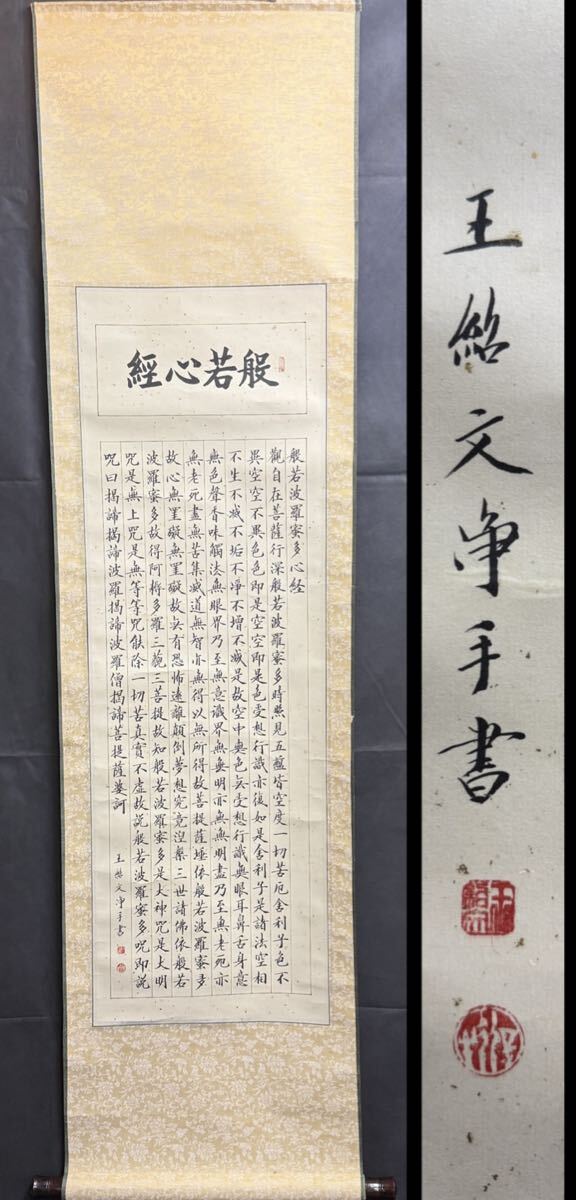 般若心經
般若波羅蜜多心経
觀自在菩薩行深般若波羅蜜多時照見五蘊皆空度一切苦厄舍利子色不
異空空不異色色即是空空即是色受想行識亦復如是舍利子是諸法空相
不生不滅不垢不淨不增不減是故空中無色无受想行識無眼耳鼻舌身意
無色聲香味觸法無眼界乃至無意識界無無明亦無無明盡乃至無老死亦
無老死盡無苦集滅道無智亦無得以無所得故菩提薩埵依般若波羅蜜多
故心無罣礙無罣礙故无有恐怖遠離顛倒夢想究竟涅槃三世諸佛依般若
波羅蜜多故得阿耨多羅三藐三菩提故知般若波羅蜜多是大神咒是大明
咒是無上咒是無等等咒能除一切苦真實不虛故說般若波羅蜜多咒即說
咒曰揭諦揭諦波羅揭諦波羅僧揭諦菩提薩婆訶
王紹文净手書
王紹文净手書